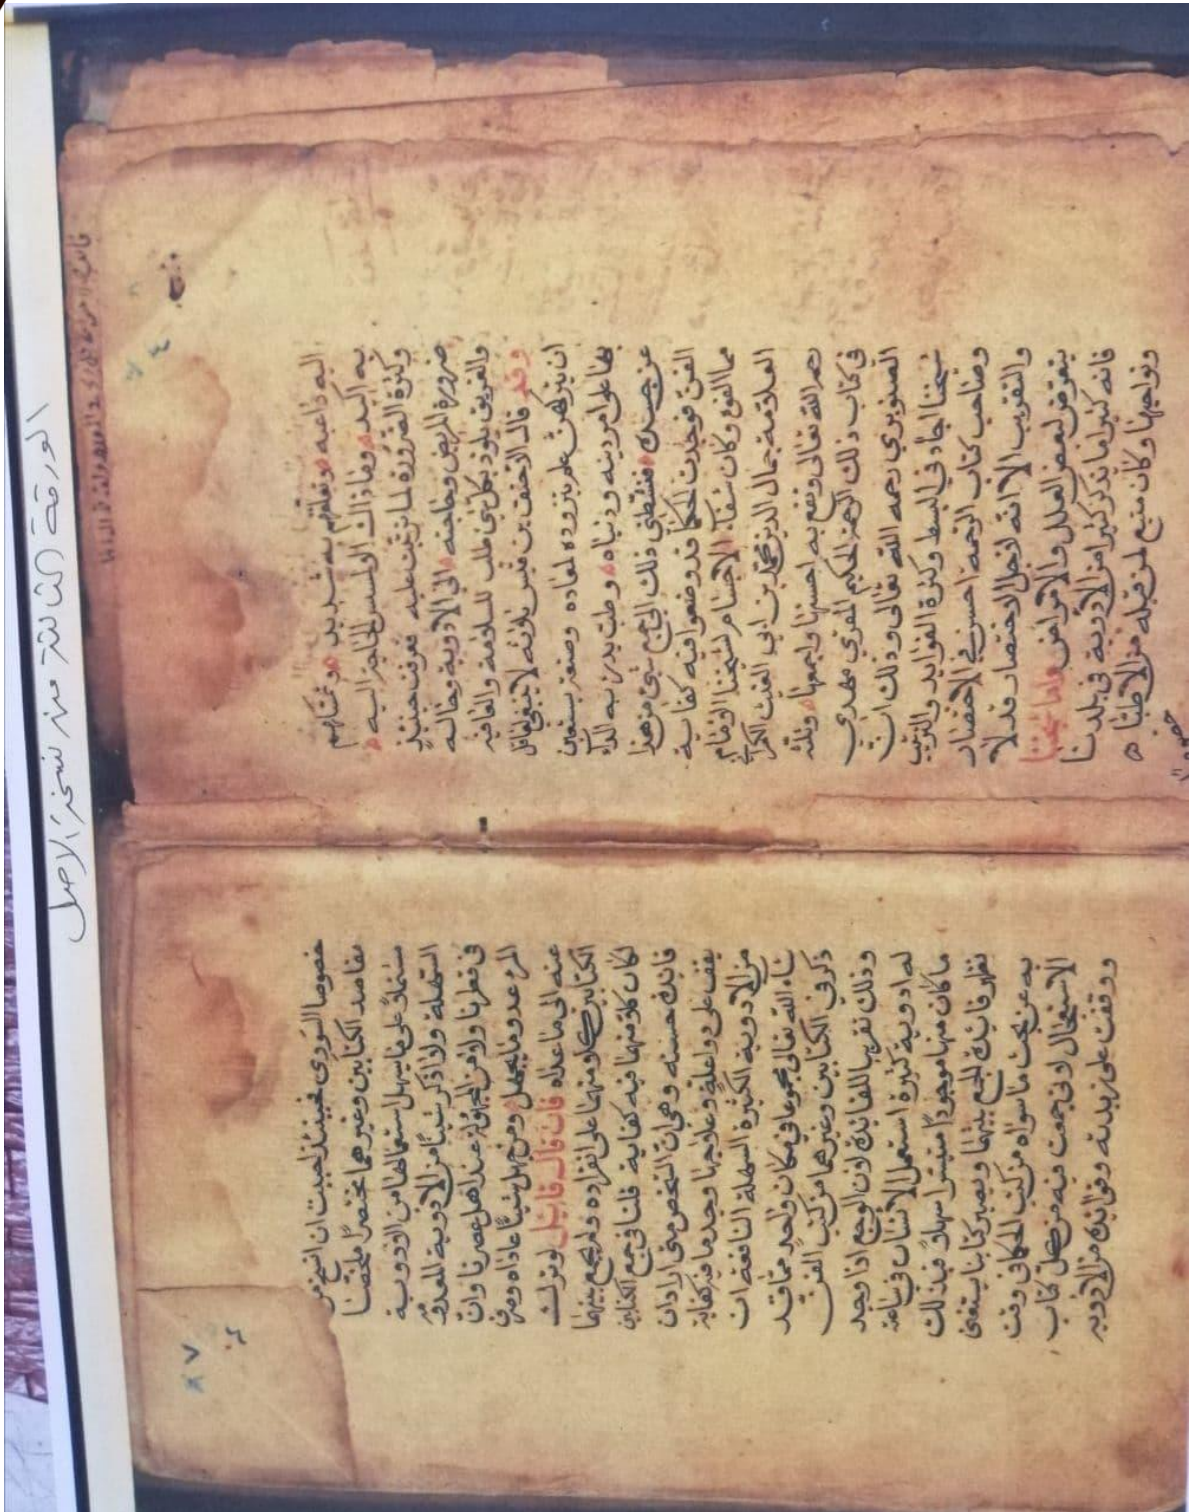 الورقة الثالثة من نسخة الاصل
اليه داعيه وتعلقهم به شديد وتمسكهم
به اكيد وما ذاك الا لمسيس الحاجة اليه
وكثرة الضرورة لما ترتب عليه فعرفت حينئذ
ضرورة المريض وحاجته الى الادوية وماله
والغريق يلوذ بكل شي طلبا للسلامة والعافيه
وقد قال الاحنف بن قيس ثلاثه لا ينبغي لعاقل
ان يتركهن علم يتزوده لمعاده وصنعة يستعين
بها على امر دينه ودنياه وطب يذب به الداء
عن جسده فنشطني ذلك الى جمع شي من هذا
الفن فوجدت الحكما قد وضعوا فيه كفاية
مما الفوه وكان شفاء الاجسام لشيخنا الامام
العلامة جمال الدين محمد بن ابي الغيث الكمراني
رحمه الله تعالى ونفع به احسنها واجمعها ومثله
في كتاب ذلك الرحمة للحكيم المقري مهدي
الصنوبري رحمه الله تعالى وذلك ان
شيخنا اجاد في البسط وكثرة الفوايد والترتيب
وصاحب كتاب الرحمة احسن في الاختصار
والتقريب الا انه لاجل الاختصار قد لا
يتعرض لبعض العلل والامراض واما شيخنا
فانه كثيرا ما يذكر كثيرا من الادوية في بلدنا
ونواحيها وكان متبع لمن قبله من الاطبا ه
خصوصا
خصوصا السوردي فحينئذ احببت ان انسخ من
مقاصد الكتابين وغيرهما مختصرا ملخصا
مشتملا على ما يسهل استعمالها من الادوية
السهلة ولا اذكر شيئا من الادوية المعدوم
في قطرنا ولا من المجهول عند اهل عصرنا وان
المرء عدو ما يجهل ومن جهل شيئا عاداه وصرف
عنه الى ما عداه فان قال قايل لو تركت
الكتابين كلا منهما على انفراده ولم يجمع بينهما
لكان كلا منهما فيه كفاية قلنا في جمع الكتابين
فايدة حسنه وهي ان الشخص متى اراد ان
يقف على دوا علة وعلاجها وجد ما فيه كفاية
من الادوية الكثيرة السهلة النافعة ان
شاء الله تعالى مجموعا في مكان واحد مما قد
ذكر في الكتابين وغيرهما من كتب الفن
وذلك تقريبا للفايدة لان الوجع اذا وجد
له ادوية كثيرة استعمل الانسان في ساعة
ما كان منها موجودا متيسرا سهلا فبذلك
تظهر فايدة الجمع بينهما ويصير كتابنا يستغنى
به عن بحث ما سواه من كتب الحكما في وقت
الاستعجال لاني جمعت فيه من كل كتاب
ووقفت على زبدته وفوايده من الادوية